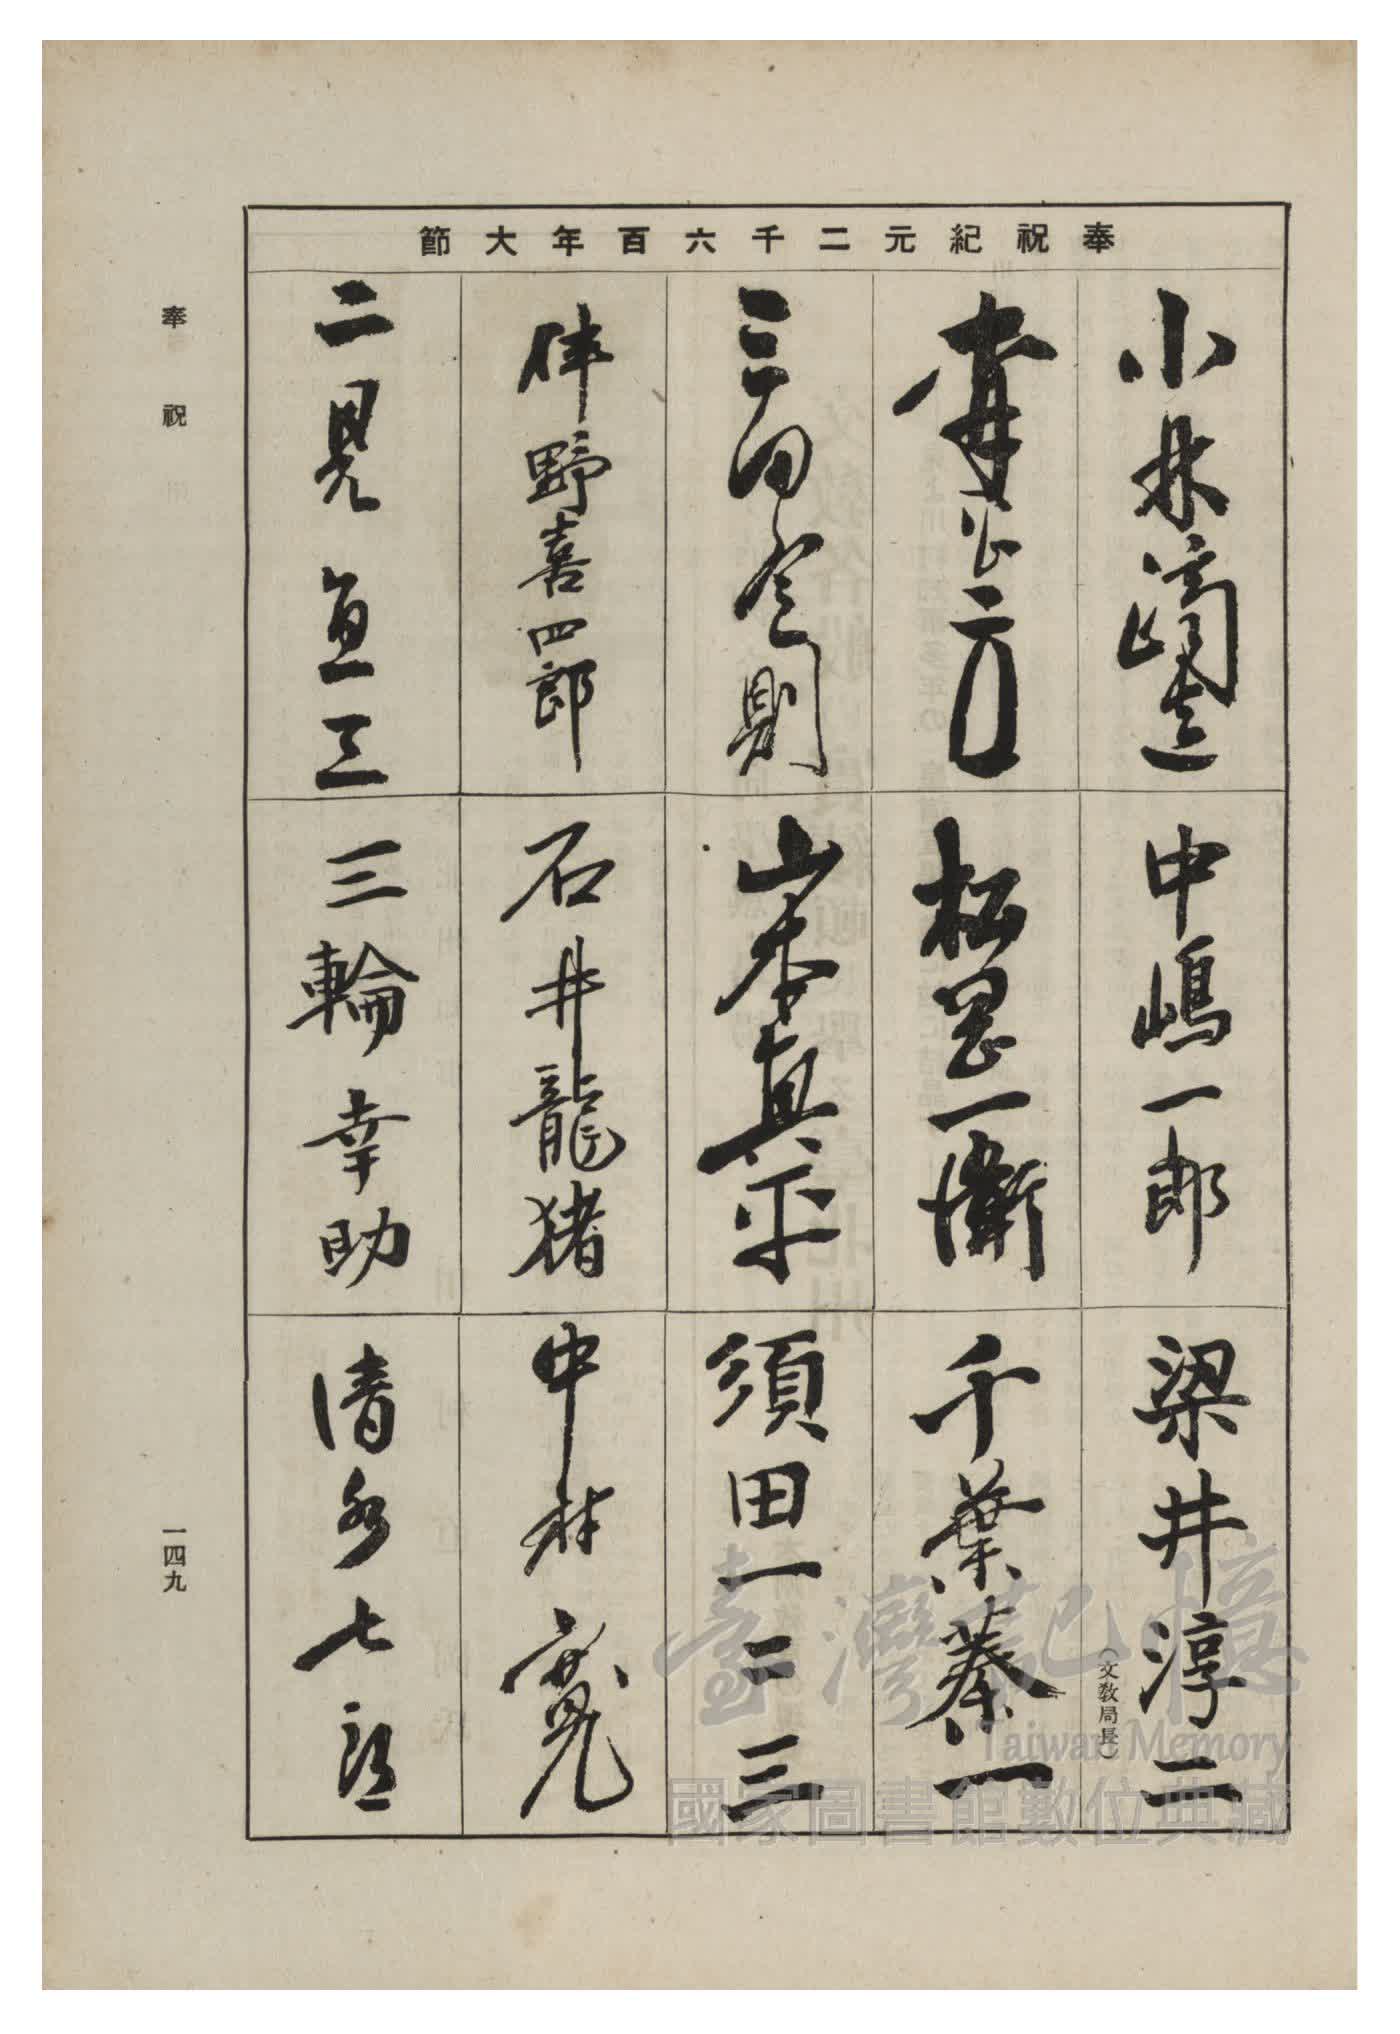 奉祝紀元二千六百年大節
小林濟造
中嶋一郎
梁井淳二
(文教局長)
松岡一衛
千葉蓁一
三田
則
山本真平
須田一二三
伴野喜四郎
石井龍猪
中村寛
二見直三
三輪幸助
清水七郎
奉祝
一四九
臺灣記憶
Taiwan Memory
國家圖書館數位典藏